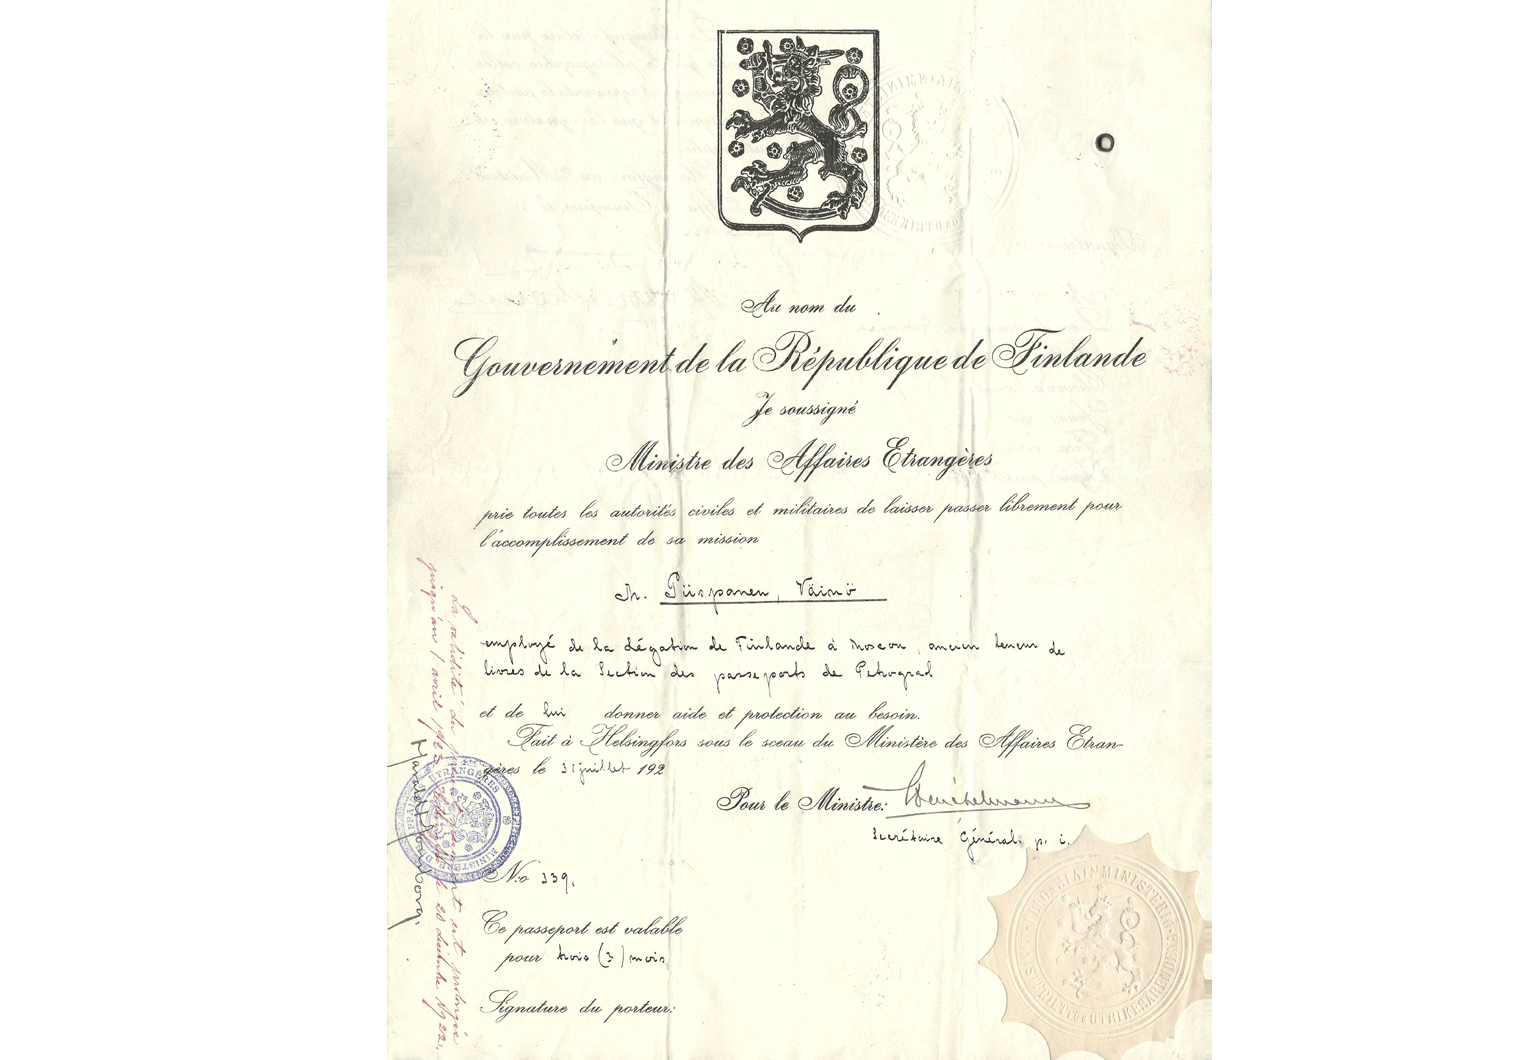 Au nom du
Gouvernement de la République de Finlande
Je soussigné
Ministre des Affaires Etrangères
prie toutes les autorités civiles et militaires de laisser passer librement pour
l'accomplissement de sa mission
M. Piispanen, Väinö
employé de la Légation de Finlande à Moscou, ancien teneur de
livres de la Section des passeports de Petrograd
et de lui donner aide et protection au besoin.
Fait à Helsingfors sous le sceau du Ministère des Affaires Etran-
gères le 31 juillet 192
Pour le Ministre:
Secrétaire Général p. i.
No 339.
Ce passeport est valable
pour trois (3) mois
Signature du porteur:
La validité du passeport est prolongée
jusqu'au 1 avril 1923. 20 décembre 1922.
ETRANGÈRES
MINISTÈRE
ULKOASIAINMINISTERIÖ
UTRIKESÄREN